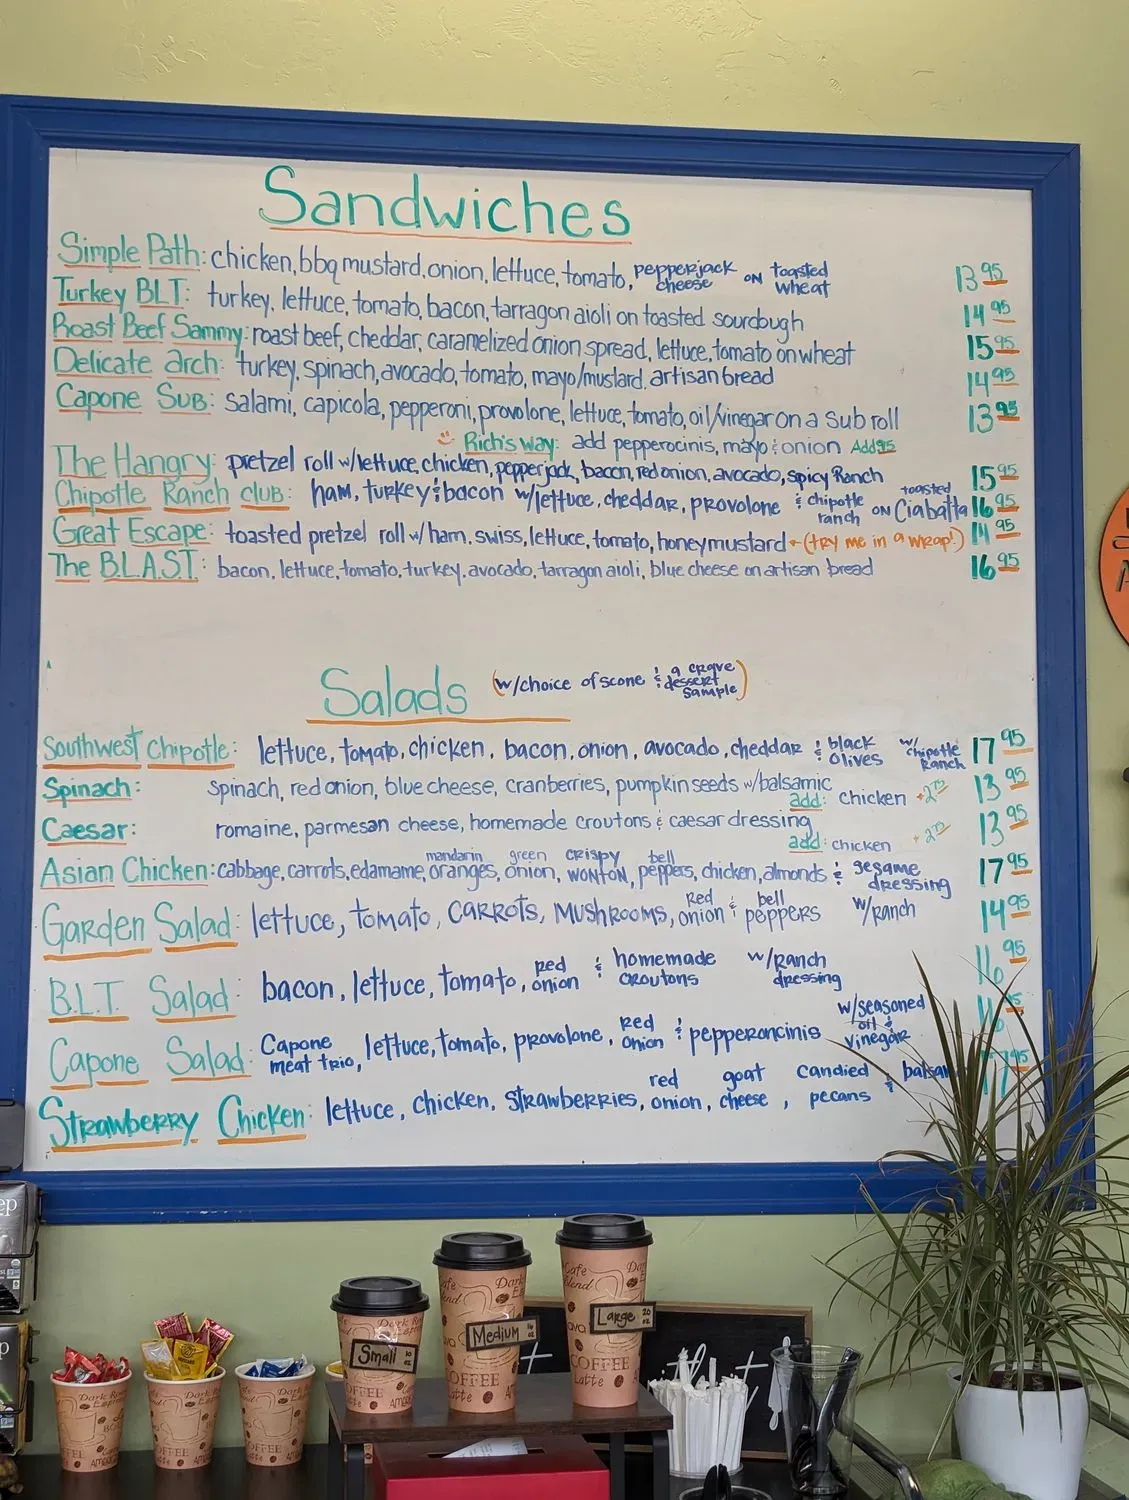 Sandwiches
Simple Path: chicken, bbq mustard, onion, lettuce, tomato, pepperjack cheese on toasted wheat 13 95
Turkey BLT: turkey, lettuce, tomato, bacon, tarragon aioli on toasted sourdough 14 95
Roast Beef Sammy: roast beef, cheddar, caramelized onion spread, lettuce, tomato on wheat 15 95
Delicate arch: turkey, spinach, avocado, tomato, mayo/mustard, artisan bread 14 95
Capone Sub: salami, capicola, pepperoni, provolone, lettuce, tomato, oil/vinegar on a sub roll 13 95
Rich's way: add pepperocinis, mayo & onion Add 95
The Hangry: pretzel roll w/lettuce, chicken, pepperjack, bacon, red onion, avocado, spicy Ranch 15 95
Chipotle Ranch club: ham, turkey & bacon w/lettuce, cheddar, provolone & chipotle ranch on toasted Ciabatta 16 95
Great Escape: toasted pretzel roll w/ ham, swiss, lettuce, tomato, honey mustard - (try me in a wrap!) 95
The B.L.A.S.T: bacon, lettuce, tomato, turkey, avocado, tarragon aioli, blue cheese on artisan bread 16 95
Salads (w/choice of scone & a crave dessert sample)
Southwest Chipotle: lettuce, tomato, chicken, bacon, onion, avocado, cheddar & black olives w/ chipotle Ranch 17 95
Spinach: Spinach, red onion, blue cheese, cranberries, pumpkin seeds w/balsamic 13 95
add: chicken + 2 75
Caesar: romaine, parmesan cheese, homemade croutons & caesar dressing 13 95
add: chicken + 2 75
Asian Chicken: cabbage, carrots, edamame, mandarin oranges, green onion, crispy wonton, bell peppers, chicken, almonds & sesame dressing 17 95
Garden Salad: lettuce, tomato, carrots, mushrooms, red onion & bell peppers w/ranch 14 95
B.L.T. Salad: bacon, lettuce, tomato, red onion & homemade croutons w/ranch dressing 16 95
Capone Salad: Capone meat trio, lettuce, tomato, provolone, red onion & pepperoncinis w/seasoned oil & vinegar 16 95
Strawberry Chicken: lettuce, chicken, strawberries, red onion, goat cheese, candied pecans & 17 95
Small 10 oz
Medium 16 oz
Large 20 oz